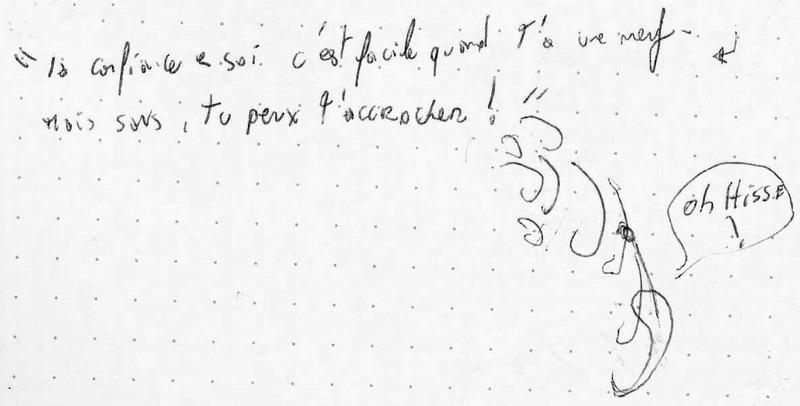 " la confiance e soi c'est facile quand t'a une meuf -
Mais sans, tu peux t'accrocher ! "
oh Hisse
!